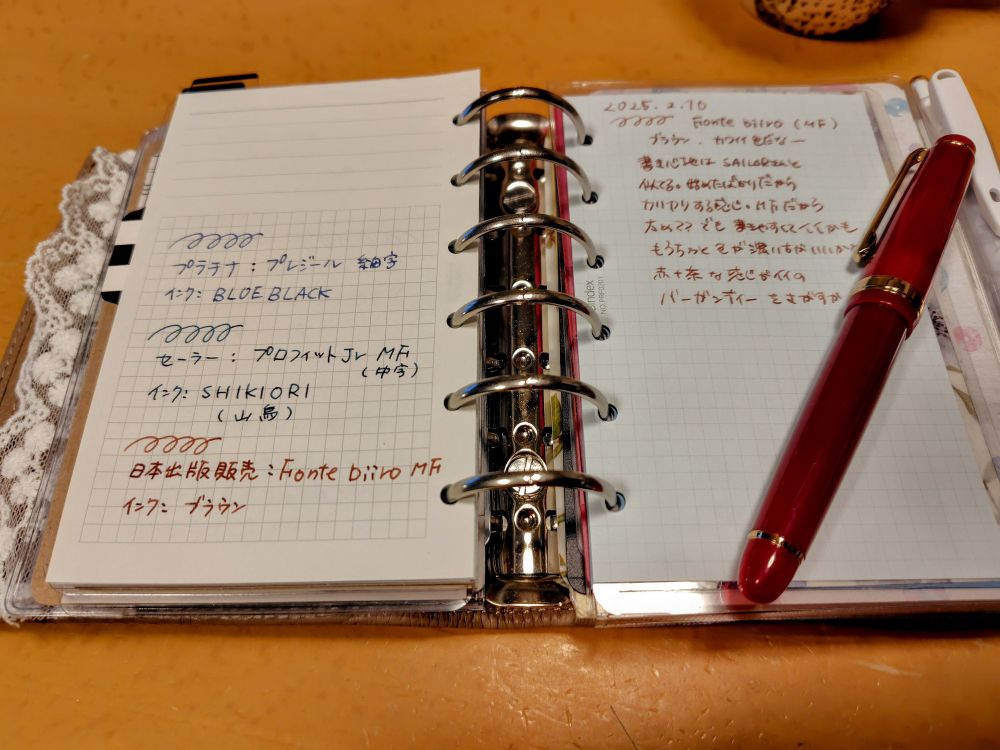 プラチナ：プレジール 細字
インク：BLUE BLACK
セーラー：プロフィットJr MF
(中字)
インク：SHIKIORI
(山鳥)
日本出版販売：Fonte biiro MF
インク：ブラウン
2025.2.10
Fonte biiro (MF)
ブラウン．カワイイ色だなー
書き心地はSAILORさんと
似てる。始めたばかりだから
カリカリする感じ。MFだから
でも書きやすくてイイかも
もうちょっと色が濃い方がいいか?
赤+茶な感じがイイの
バーガンディーをさがすか
index